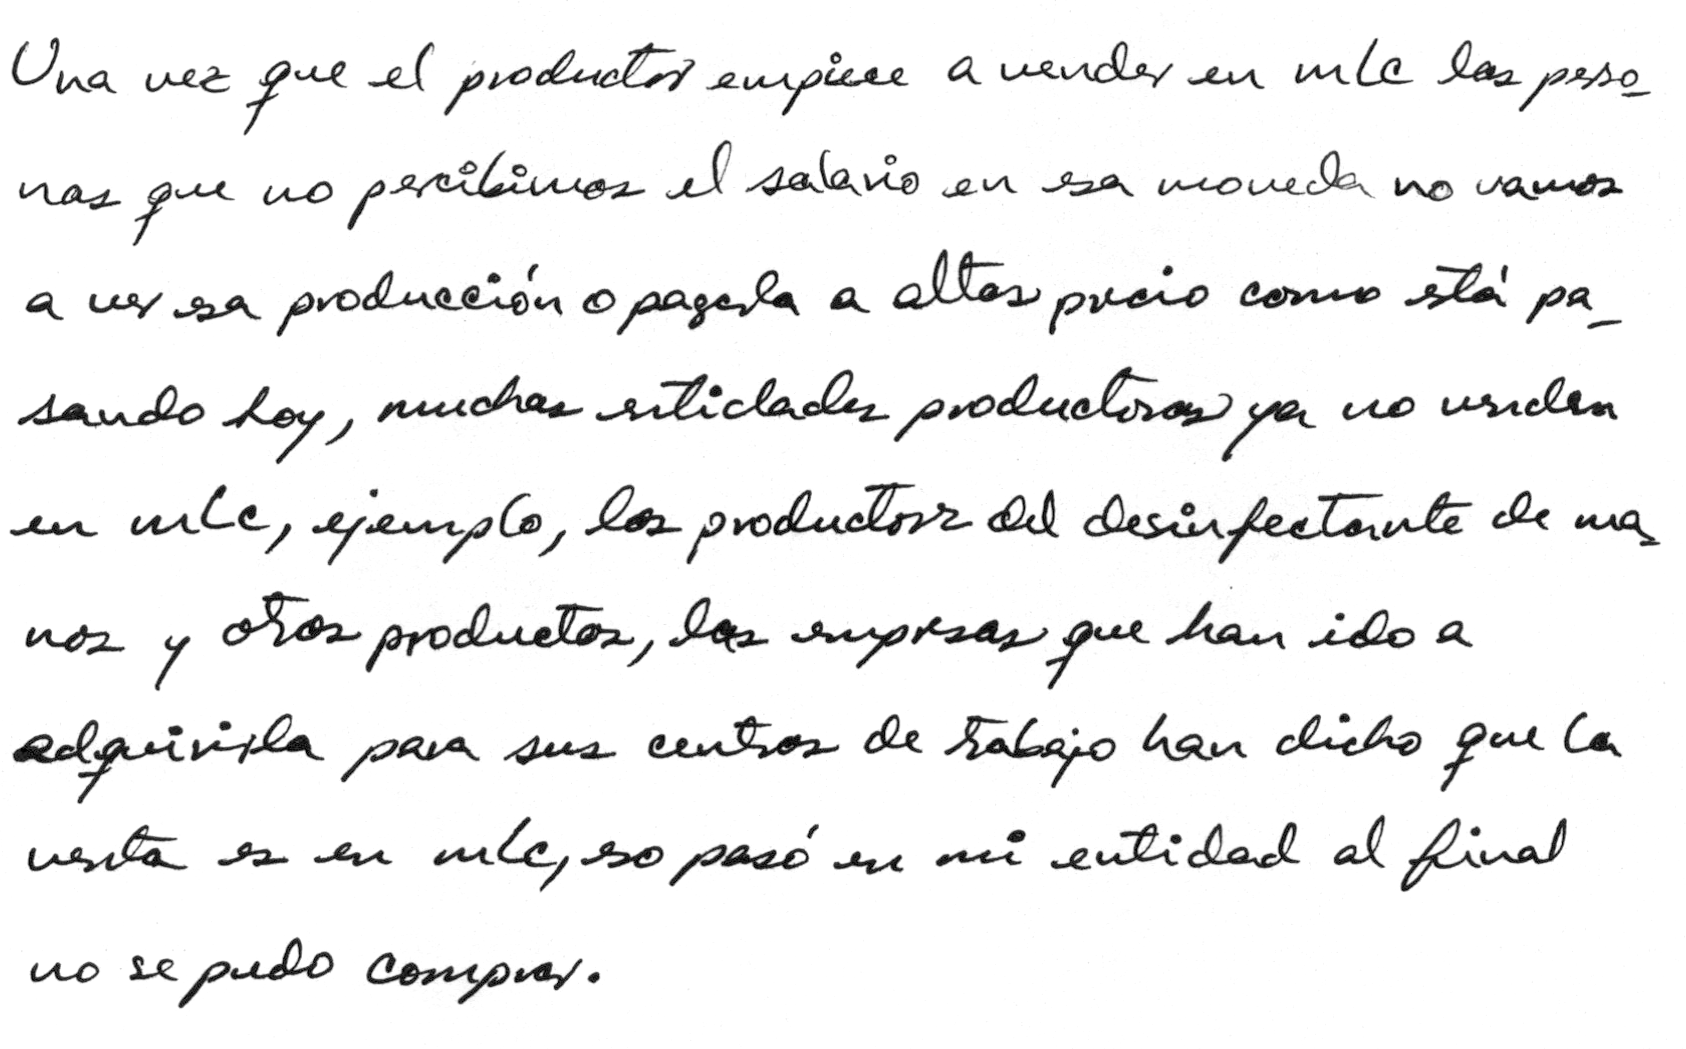 Una vez que el productor empiece a vender en mlc las perso_
nas que no percibimos el salario en esa moneda no vamos
a ver esa producción o pagarla a altos precio como está pa_
sando hoy, muchas entidades productoras ya no venden
en mlc, ejemplo, los productores del desinfectante de ma_
nos y otros productos, las empresas que han ido a
adquirirla para sus centros de trabajo han dicho que la
venta es en mlc, eso pasó en mi entidad al final
no se pudo comprar.